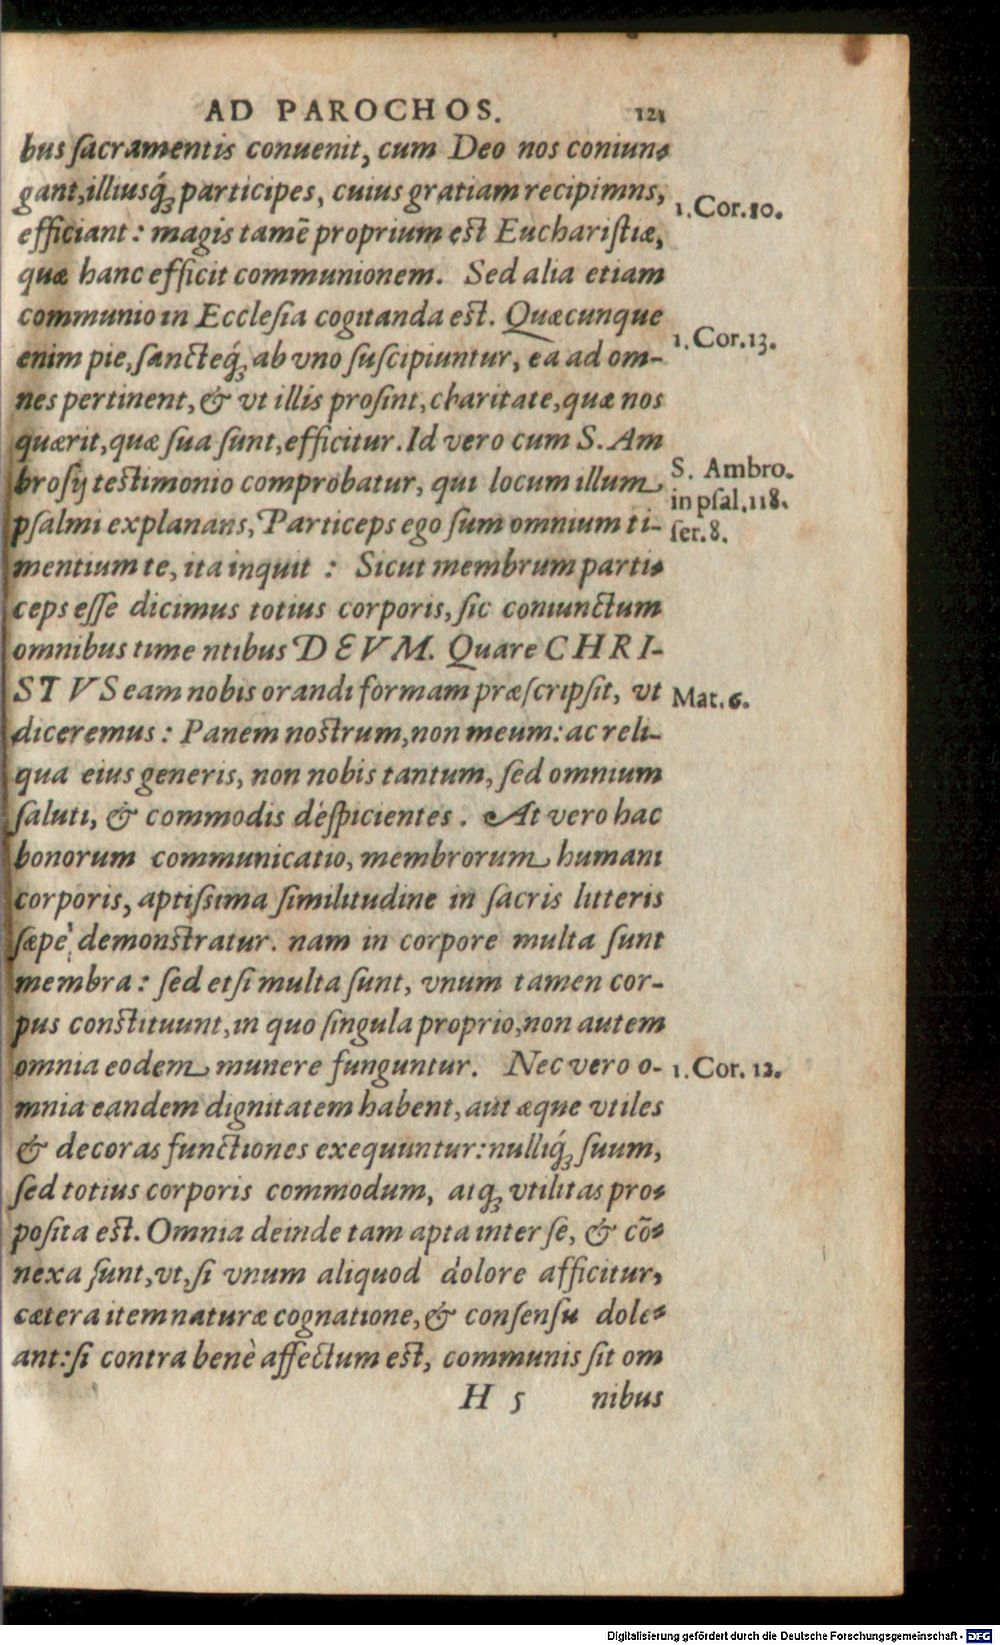 AD PAROCHOS. 121
bus ſacramentis conuenit, cum Deo nos coniun-
gant, illiusq́ꝫ participes, cuius gratiam recipimns,
1. Cor. 10.
efficiant: magis tamē proprium eſt Euchariſtiæ,
quæ hanc efficit communionem. Sed alia etiam
communio in Eccleſia cogitanda eſt. Quæcunque
1. Cor. 13.
enim pie, ſancteq́ꝫ ab vno ſuſcipiuntur, ea ad om-
nes pertinent, & vt illis proſint, charitate, quæ nos
quærit, quæ ſua ſunt, efficitur. Id vero cum S. Am
S. Ambro.
broſij teſtimonio comprobatur, qui locum illum
in pſal. 118.
pſalmi explanans, Particeps ego ſum omnium ti-
ſer. 8.
mentium te, ita inquit : Sicut membrum parti-
ceps eſſe dicimus totius corporis, ſic coniunctum
omnibus time ntibus DEVM. Quare CHRI-
STVS eam nobis orandi formam præſcripſit, vt
Mat. 6.
diceremus: Panem noſtrum, non meum: ac reli-
qua eius generis, non nobis tantum, ſed omnium
ſaluti, & commodis deſpicientes. At vero hac
bonorum communicatio, membrorum humani
corporis, aptiſsima ſimilitudine in ſacris litteris
ſæpè demonſtratur. nam in corpore multa ſunt
membra: ſed etſi multa ſunt, vnum tamen cor-
pus conſtituunt, in quo ſingula proprio, non autem
omnia eodem munere funguntur. Nec vero o-
1. Cor. 12.
mnia eandem dignitatem habent, aut æque vtiles
& decoras functiones exequuntur: nulliq́ꝫ ſuum,
ſed totius corporis commodum, atqꝫ vtilitas pro-
poſita eſt. Omnia deinde tam apta inter ſe, & cō-
nexa ſunt, vt, ſi vnum aliquod dolore afficitur,
cætera item naturæ cognatione, & conſenſu dole-
ant: ſi contra benè affectum eſt, communis ſit om
H 5 nibus
Digitalisierung gefördert durch die Deutsche Forschungsgemeinschaft - DFG